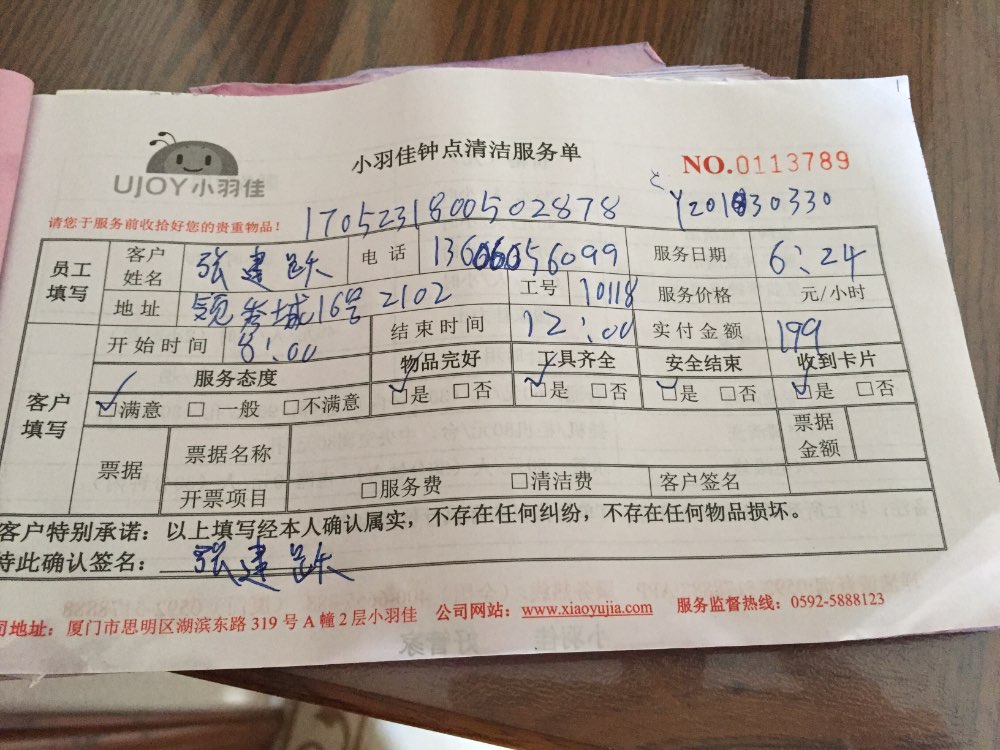 小羽佳钟点清洁服务单
NO.0113789
UJOY小羽佳
请您于服务前收拾好您的贵重物品！
170523180050​2878
员工填写 客户姓名 张建 电话 13606056099 服务日期 6:24
地址 领秀城16号2102 工号 10118 服务价格 元/小时
开始时间 8:00 结束时间 12:00 实付金额 199
客户填写 服务态度 物品完好 工具齐全 安全结束 收到卡片
□满意 □一般 □不满意 □是 □否 □是 □否 □是 □否 □是 □否
票据 票据名称 票据金额
开票项目 □服务费 □清洁费 客户签名
客户特别承诺：以上填写经本人确认属实，不存在任何纠纷，不存在任何物品损坏。
特此确认签名： 张建
司地址：厦门市思明区湖滨东路319号A幢2层小羽佳 公司网站：www.xiaoyujia.com 服务监督热线：0592-5888123